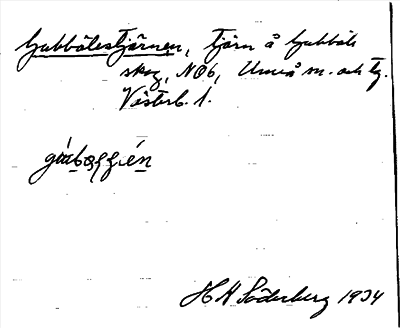 Gubbölestjärnen, tjärn å Gubböle
skog, NÖb, Umeå sn. och tg.
Västerb. l.
H H Söderberg 1934